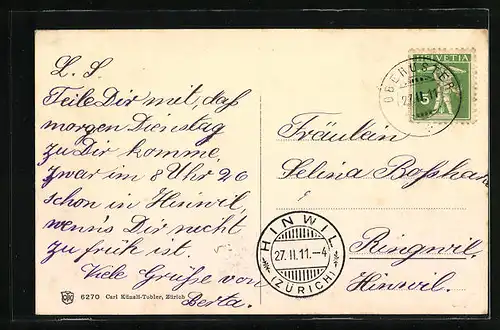 L. S.
Teile Dir mit, daß
morgen Dienstag
zu Dir komme,
zwar im 8 Uhr 26
schon in Hinwil,
wenn's Dir nicht
zu früh ist.
Viele Grüße von
Berta.
6270 Carl Künzli-Tobler, Zürich
HELVETIA
5
OBERUSTER
27.II.11
Fräulein
Selina Boßhard
HINWIL
27.II.11.-4
(ZÜRICH)
Ringwil,
Hinwil.